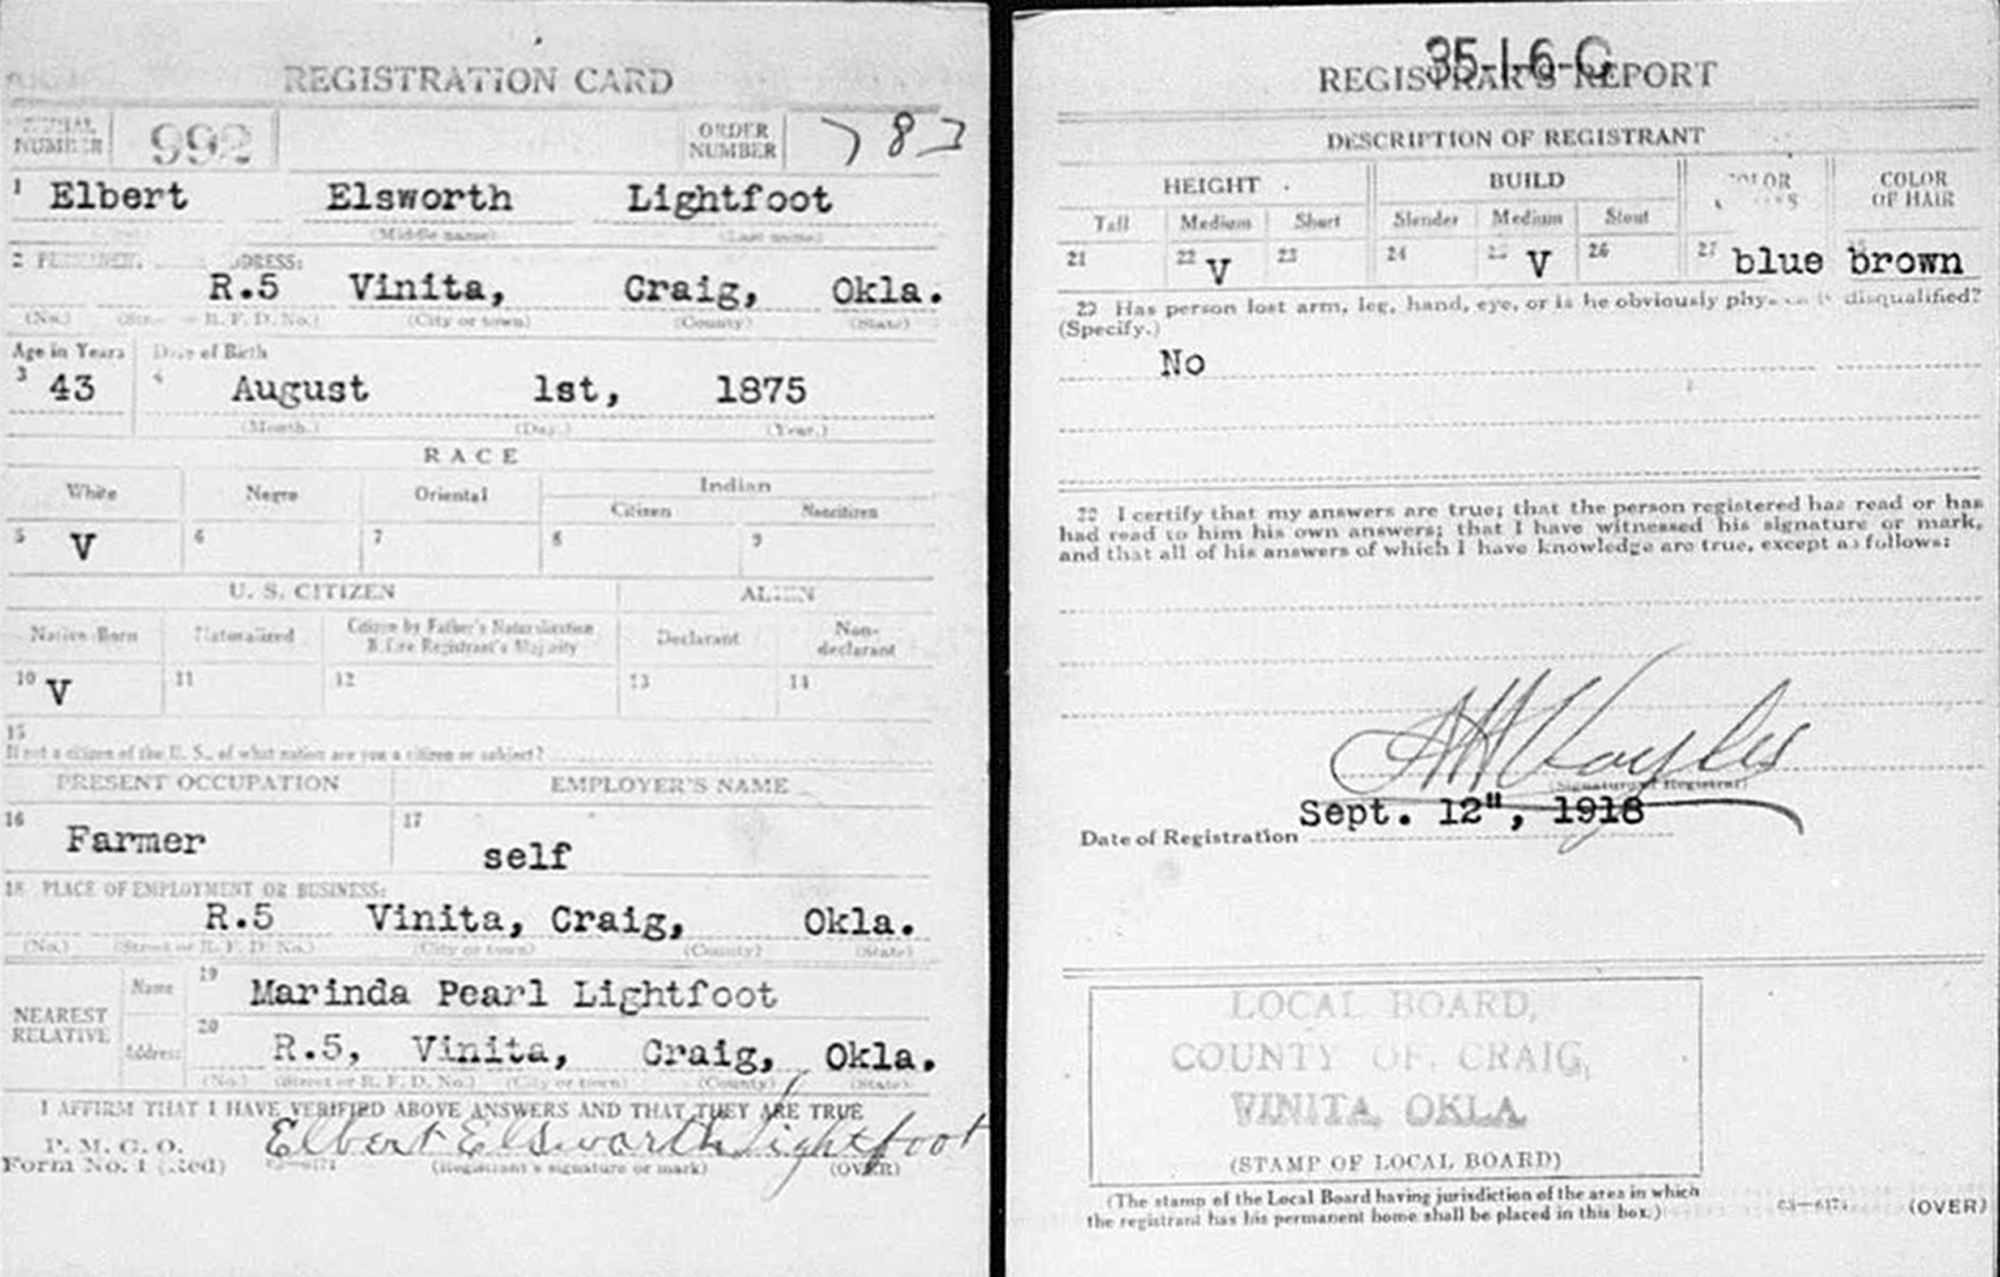 REGISTRATION CARD
SERIAL NUMBER 992 ORDER NUMBER 783
1 Elbert Elsworth Lightfoot
(Middle name) (Last name)
2 PERMANENT ADDRESS:
R.5 Vinita, Craig, Okla.
(No.) (Street or R. F. D. No.) (City or town) (County) (State)
Age in Years Date of Birth
3 43 4 August 1st, 1875
(Month.) (Day.) (Year.)
RACE
White Negro Oriental Indian
Citizen Noncitizen
5 V 6 7 8 9
U. S. CITIZEN ALIEN
Native Born Naturalized Citizen by Father's Naturalization Before Registrant's Majority Declarant Non-declarant
10 V 11 12 13 14
15
If not a citizen of the U. S., of what nation are you a citizen or subject?
PRESENT OCCUPATION EMPLOYER'S NAME
16 Farmer 17 self
18 PLACE OF EMPLOYMENT OR BUSINESS:
R.5 Vinita, Craig, Okla.
(No.) (Street or R. F. D. No.) (City or town) (County) (State)
NEAREST RELATIVE
Name 19 Marinda Pearl Lightfoot
Address 20 R.5, Vinita, Craig, Okla.
(No.) (Street or R. F. D. No.) (City or town) (County) (State)
I AFFIRM THAT I HAVE VERIFIED ABOVE ANSWERS AND THAT THEY ARE TRUE
P. M. G. O.
Form No. 1 (Red) Elbert Elsworth Lightfoot
(Registrant's signature or mark) (OVER)
35-1-6-C
REGISTRAR'S REPORT
DESCRIPTION OF REGISTRANT
HEIGHT BUILD COLOR OF EYES COLOR OF HAIR
Tall Medium Short Slender Medium Stout
21 22 V 23 24 25 V 26 27 blue brown
29 Has person lost arm, leg, hand, eye, or is he obviously physically disqualified?
(Specify.)
No
30 I certify that my answers are true; that the person registered has read or has
had read to him his own answers; that I have witnessed his signature or mark,
and that all of his answers of which I have knowledge are true, except as follows:
(Signature of Registrar)
Date of Registration Sept. 12", 1918
LOCAL BOARD,
COUNTY OF CRAIG,
VINITA, OKLA.
(STAMP OF LOCAL BOARD)
(The stamp of the Local Board having jurisdiction of the area in which
the registrant has his permanent home shall be placed in this box.)
(OVER)